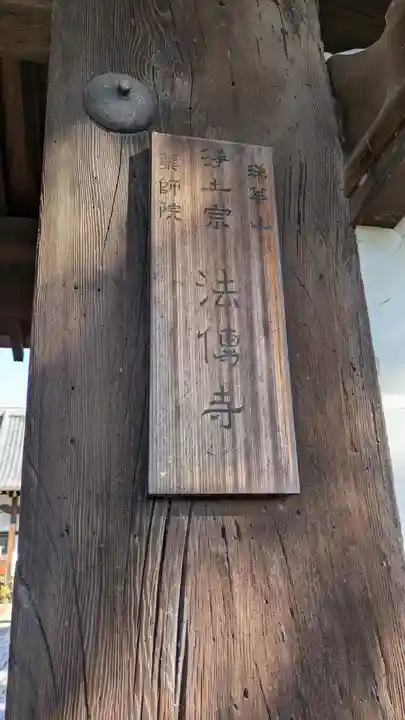 瑞華山
浄土宗 法傳寺
薬師院